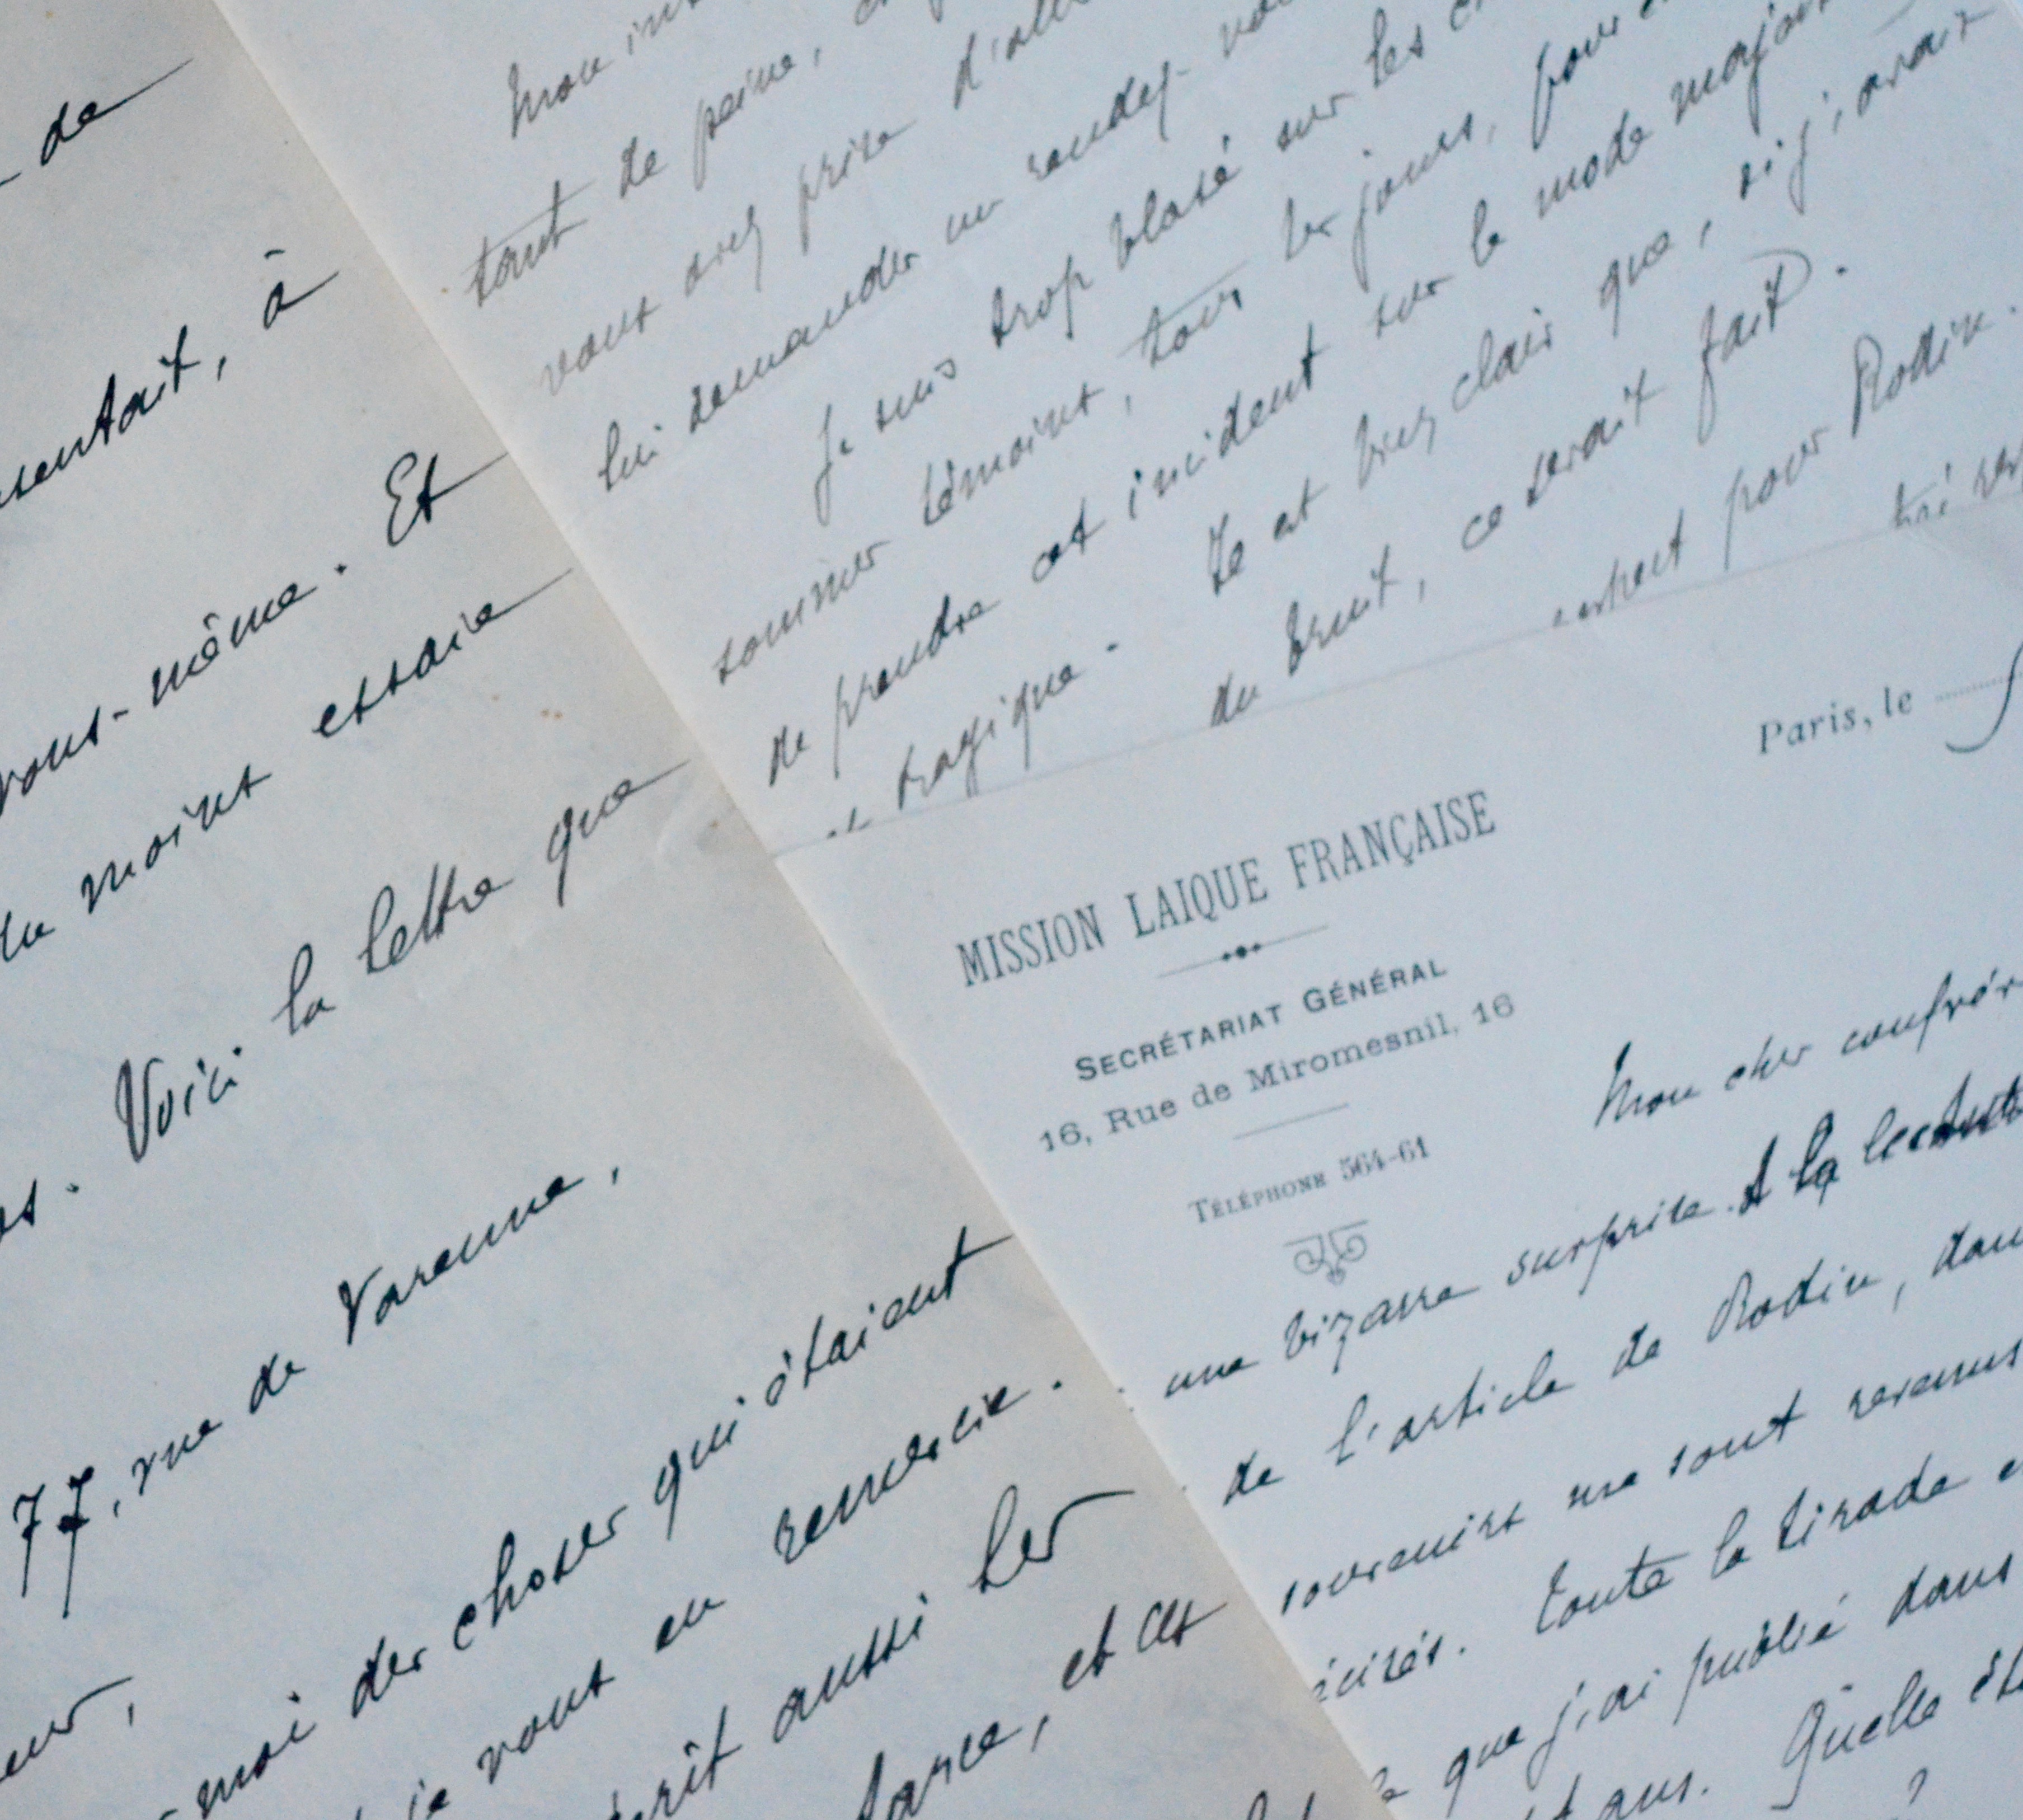 de
sentait, à
vous-même. Et
du moins essaie
Voici la lettre que
77, rue de Varenne,
moi des choses qui étaient
je vous en remercie.
écrit aussi les
et ces
Mon
tant de peine,
vous avez prise d'all
lui demander un rendez-vou
Je suis trop blasé sur les
sommes témoins, tous les jours, pour
de prendre cet incident sur le mode majeur
et tragique. Il est bien clair que, si j'avais
du bruit, ce serait fait.
respect pour Rodin.
Paris, le
MISSION LAIQUE FRANÇAISE
SECRÉTARIAT GÉNÉRAL
16, Rue de Miromesnil, 16
TÉLÉPHONE 564-61
Mon cher confrèr
une bizarre surprise. A la lecture
de l'article de Rodin, dan
souvenirs me sont revenus
précisés. Toute la tirade
que j'ai publié dans
ans. Quelle
?